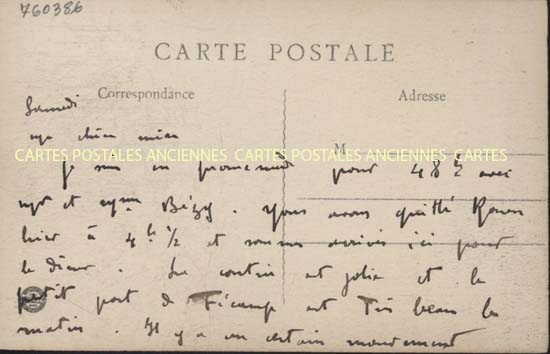 760386
CARTE POSTALE
Correspondance Adresse
Samedi
ma chère mère M
CARTES POSTALES ANCIENNES CARTES POSTALES ANCIENNES CARTES
Je suis en promenade pour 48 h avec
Mr et Mme Bézy. Nous avons quitté Rouen
hier à 4h 1/2 et sommes arrivés ici pour
le dîner. La contrée est jolie et le
petit port de Fécamp est très beau le
matin. Il y a un certain mouvement